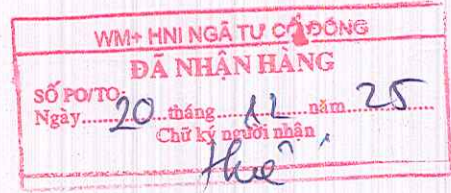 WM+ HNI NGÃ TƯ CỔ ĐÔNG
ĐÃ NHẬN HÀNG
SỐ PO/TO:
Ngày......20...tháng....12......năm 25
Chữ ký người nhận
Huê